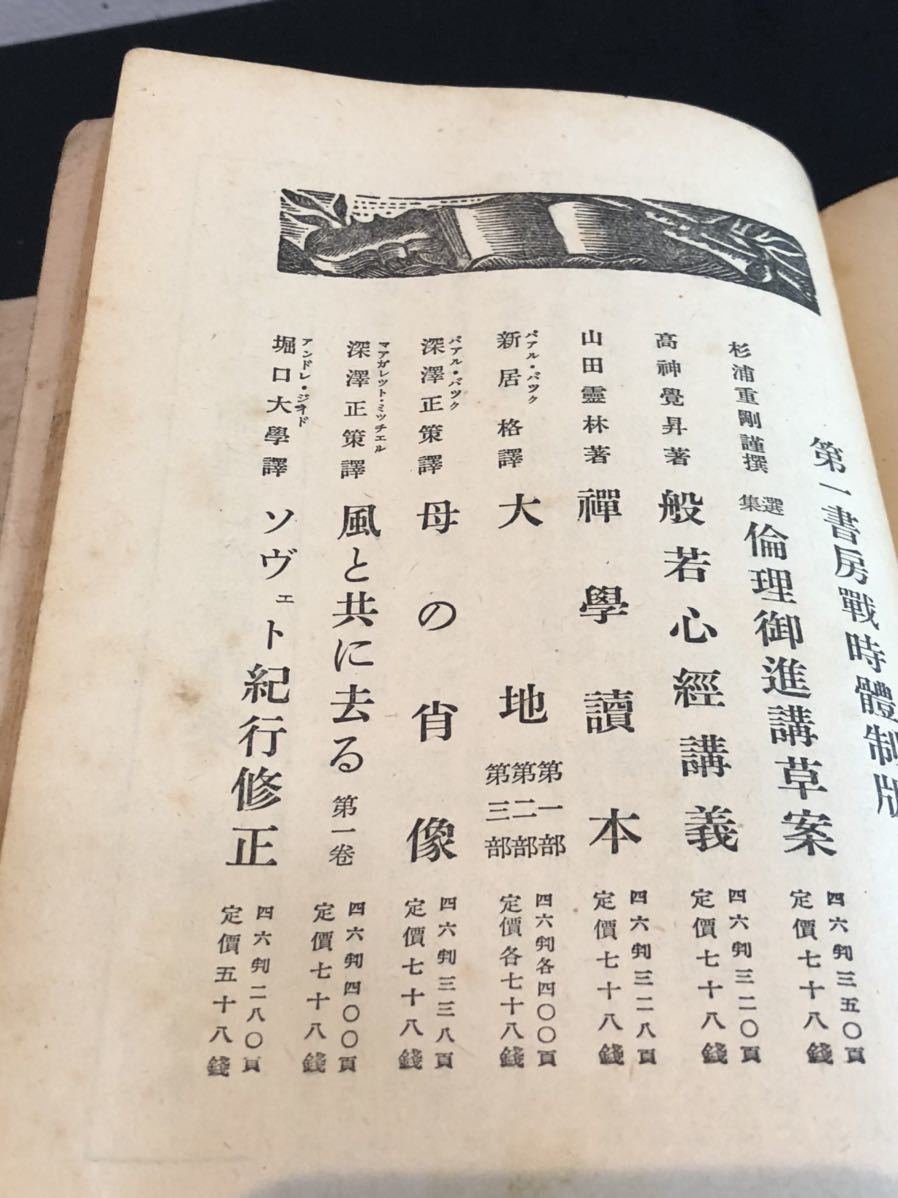 第一書房戰時體制版
杉浦重剛謹撰 選集 倫理御進講草案 四六判三五〇頁 定價七十八錢
高神覺昇著 般若心經講義 四六判三二〇頁 定價七十八錢
山田靈林著 禪學讀本 四六判三二八頁 定價七十八錢
パアル・バツク 新居格譯 大地 第一部 第二部 第三部 四六判各四〇〇頁 定價各七十八錢
パアル・バツク 深澤正策譯 母の肖像 四六判三三八頁 定價七十八錢
マアガレツト・ミツチエル 深澤正策譯 風と共に去る 第一卷 四六判四〇〇頁 定價七十八錢
アンドレ・ジイド 堀口大學譯 ソヴェト紀行修正 四六判二八〇頁 定價五十八錢